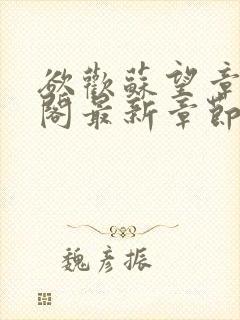 欲歡蘇望章
閣最新章節
魏彥振